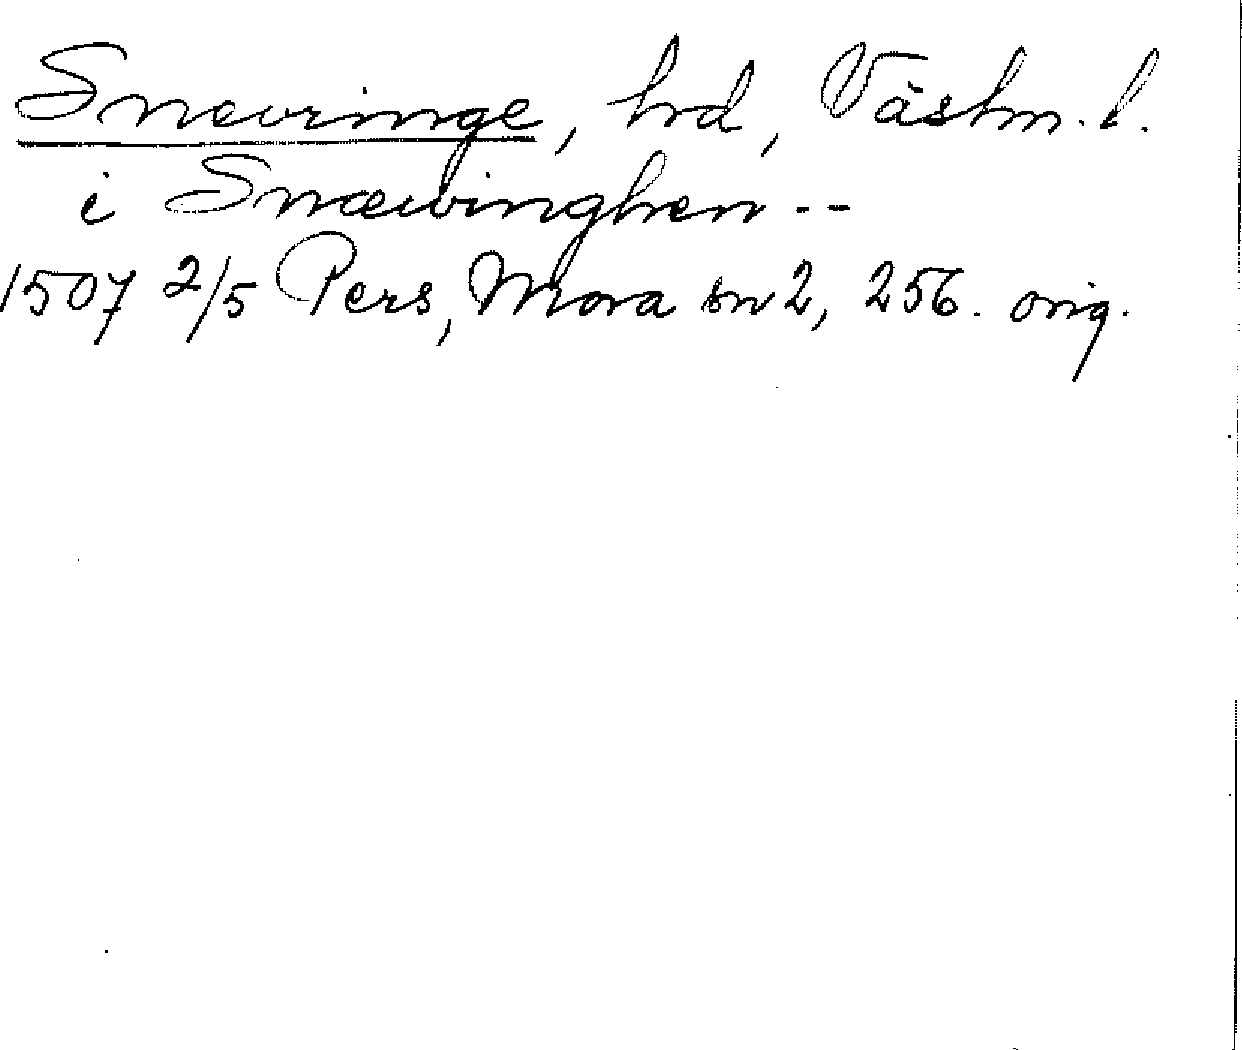 Snevringe, hrd, Västm. l.
i Snæwinghen --
1507 2/5 Pers, Mora sn 2, 256. orig.